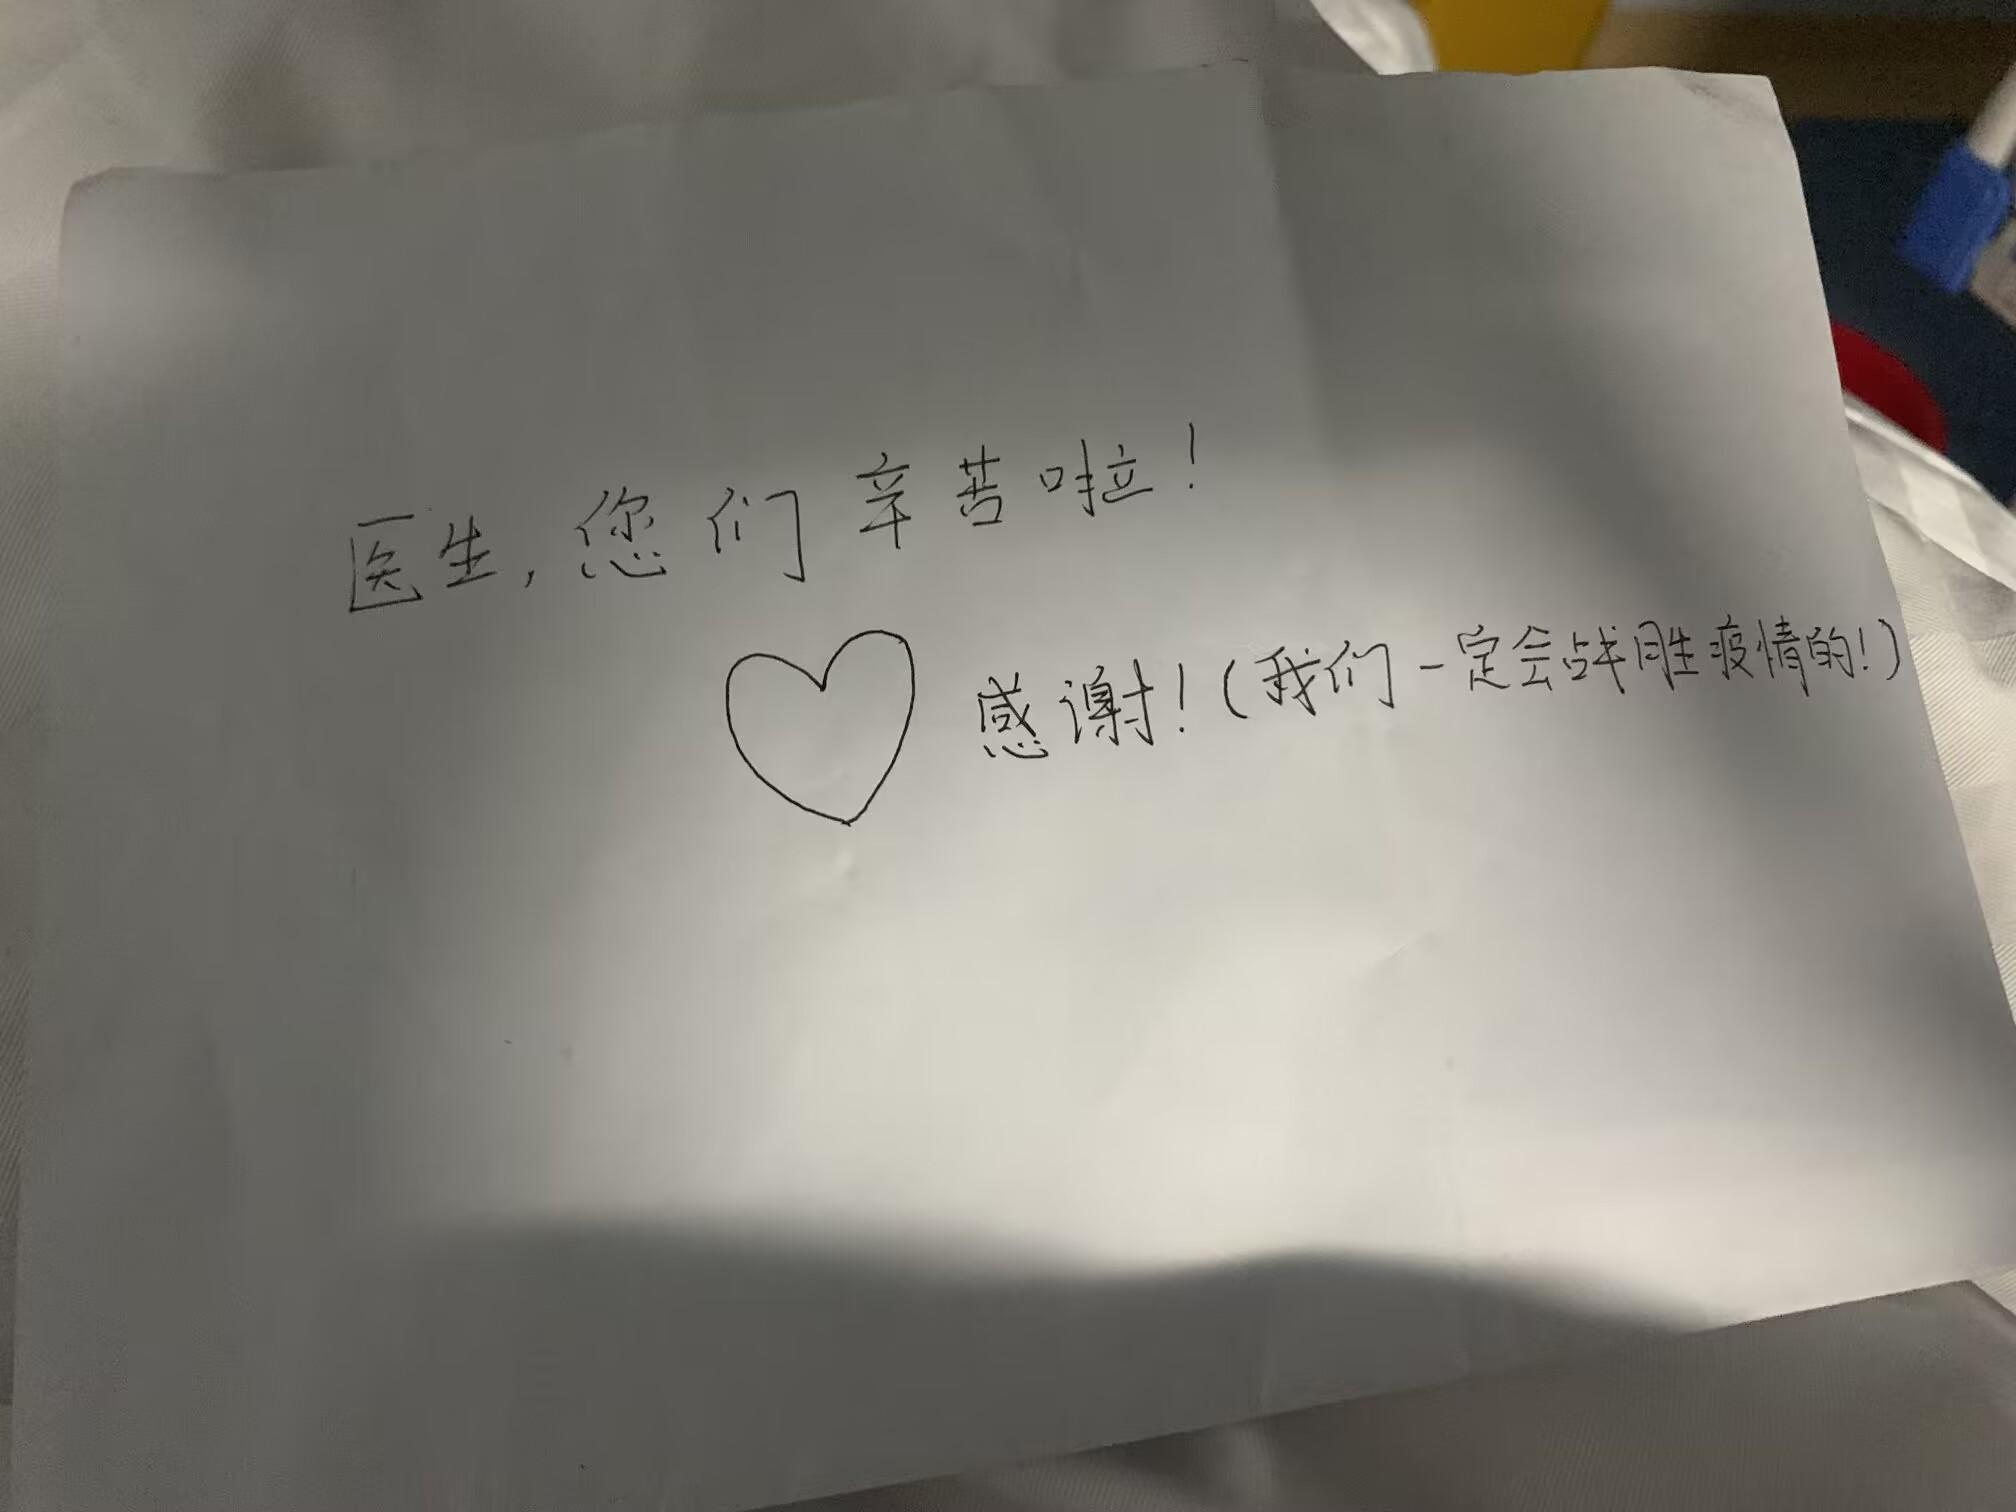 医生，您们辛苦啦！
感谢！（我们一定会战胜疫情的！）